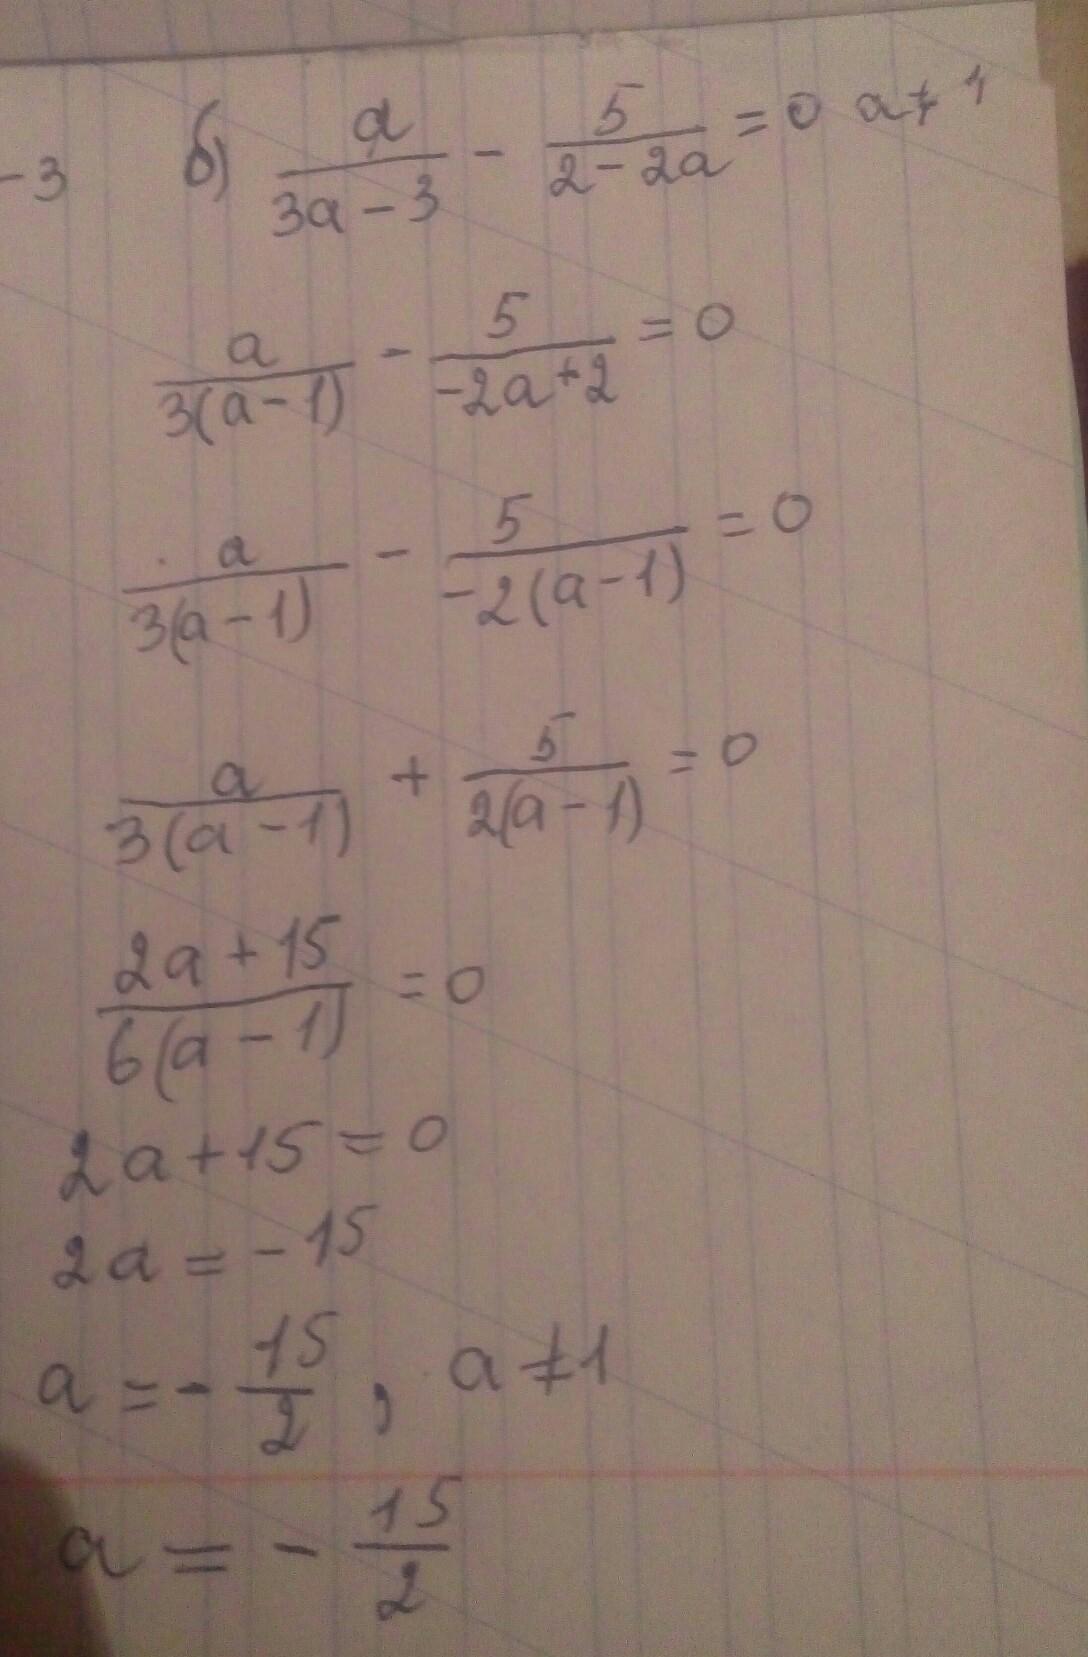 -3 б) a/(3a-3) - 5/(2-2a) = 0 a ≠ 1
a/(3(a-1)) - 5/(-2a+2) = 0
a/(3(a-1)) - 5/(-2(a-1)) = 0
a/(3(a-1)) + 5/(2(a-1)) = 0
(2a+15)/(6(a-1)) = 0
2a+15=0
2a=-15
a=-15/2, a≠1
a=-15/2